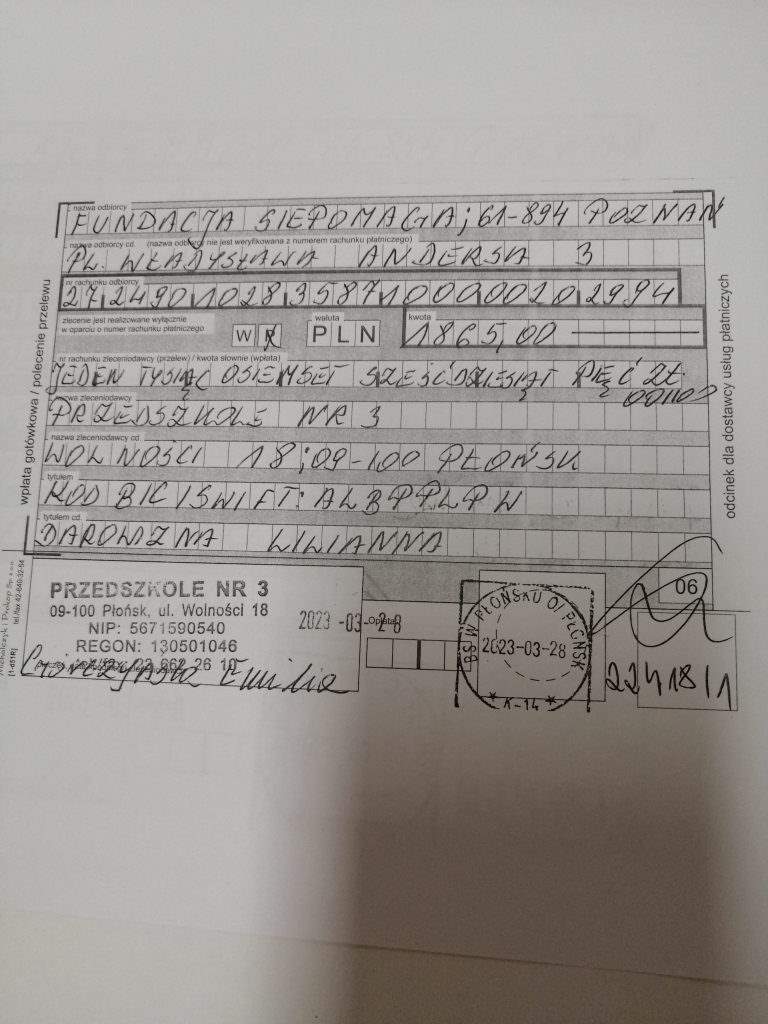 nazwa odbiorcy
FUNDACJA SIEPOMAGA; 61-894 POZNAŃ
nazwa odbiorcy cd. (nazwa odbiorcy nie jest weryfikowana z numerem rachunku płatniczego)
PL. WŁADYSŁAWA ANDERSA 3
nr rachunku odbiorcy
27249010283587100000202994
zlecenie jest realizowane wyłącznie
w oparciu o numer rachunku płatniczego
W P
waluta
PLN
kwota
1865,00
nr rachunku zleceniodawcy (przelew) / kwota słownie (wpłata)
JEDEN TYSIĄC OSIEMSET SZEŚĆDZIESIĄT PIĘĆ ZŁ
00/100
nazwa zleceniodawcy
PRZEDSZKOLE NR 3
nazwa zleceniodawcy cd.
WOLNOŚCI 18; 09-100 PŁOŃSK
tytułem
KOD BIC/SWIFT: ALBPPLPW
tytułem cd.
DAROWIZNA LILIANNA
wpłata gotówkowa / polecenie przelewu
odcinek dla dostawcy usług płatniczych
PRZEDSZKOLE NR 3
09-100 Płońsk, ul. Wolności 18
NIP: 5671590540
REGON: 130501046
23 662 26 10
Emilia
2023-03-28
Opłata
BS W PŁOŃSKU O/PŁOŃSK
2023-03-28
* K-14 *
06
22418/1
tel./fax 42-640-32-54